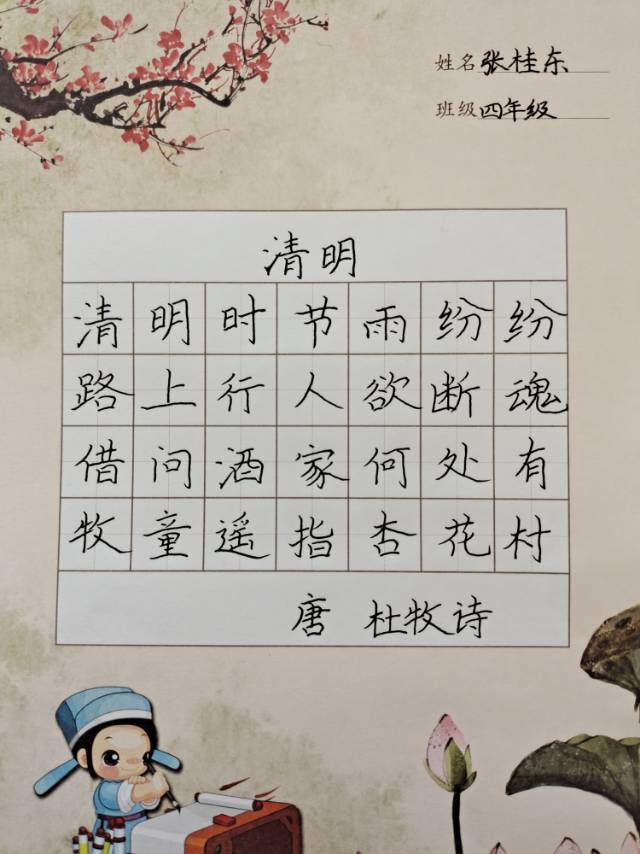 姓名 张桂东
班级 四年级
清明
清明时节雨纷纷
路上行人欲断魂
借问酒家何处有
牧童遥指杏花村
唐 杜牧诗